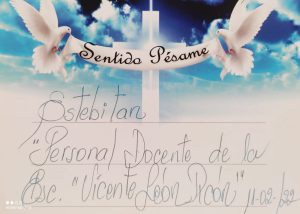 Sentido Pésame
Estebitan
"Personal Docente de la
Esc. "Vicente León Picón" 11-02-/22